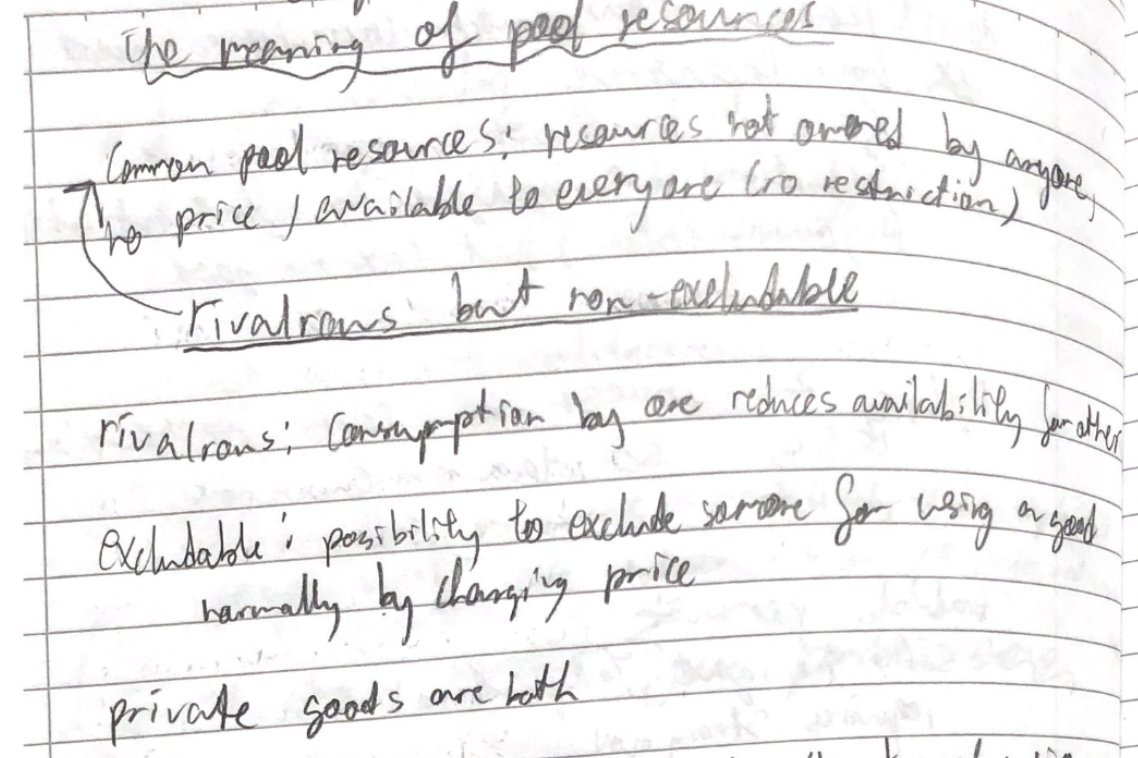 The meaning of pool resources
Common pool resources: resources not owned by anyone,
no price / available to everyone (no restriction)
rivalrous but non-excludable
rivalrous: Consumption by one reduces availability for other
excludable: posibility to exclude someone for using a good
normally by charging price
private goods are both